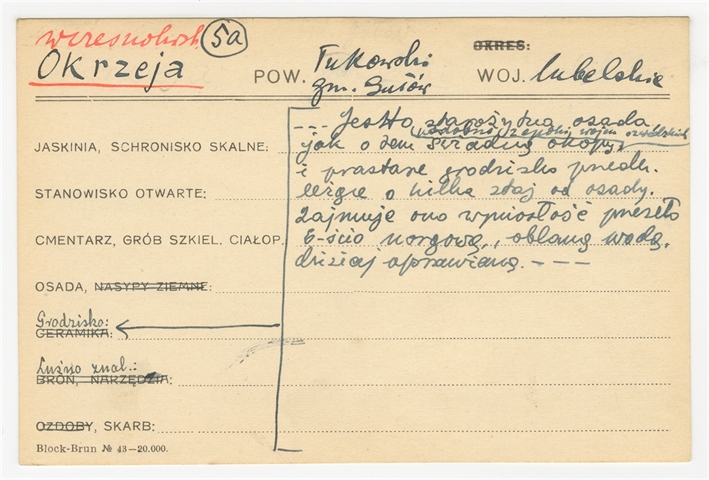 wczesnohist. 5a
Okrzeja
OKRES:
POW. Łukowski
gm. Gułów
WOJ. lubelskie
--- Jest to starożytna osada,
(podobno z epoki wojen szwedzkich)
jak o tem świadczą okopy
i prastare grodzisko
o kilka staj od osady.
Zajmuje ono wyniosłość przeszło
6-ścio morgową, oblaną wodą,
dzisiaj uprawianą. ---
JASKINIA, SCHRONISKO SKALNE:
STANOWISKO OTWARTE:
CMENTARZ, GRÓB SZKIEL. CIAŁOP.
OSADA, NASYPY ZIEMNE:
Grodzisko:
CERAMIKA:
Luźno znal.:
BROŃ, NARZĘDZIA:
OZDOBY, SKARB:
Block-Brun № 43—20.000.